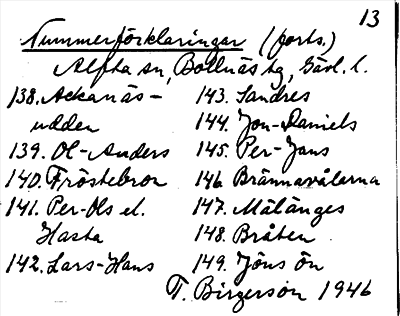 13
Nummerförklaringar (forts.)
Alfta sn, Bollnäs tg, Gävl. l.
138. Ackanäs-
udden
139. Ol-Anders
140. Fröstebron
141. Per-Ols el.
Hasta
142. Lars-Hans
143. Sandres
144. Jon-Daniels
145. Per-Jans
146. Brännavålarna
147. Mälänges
148. Bråten
149. Jöns ön
T. Birgerson 1946